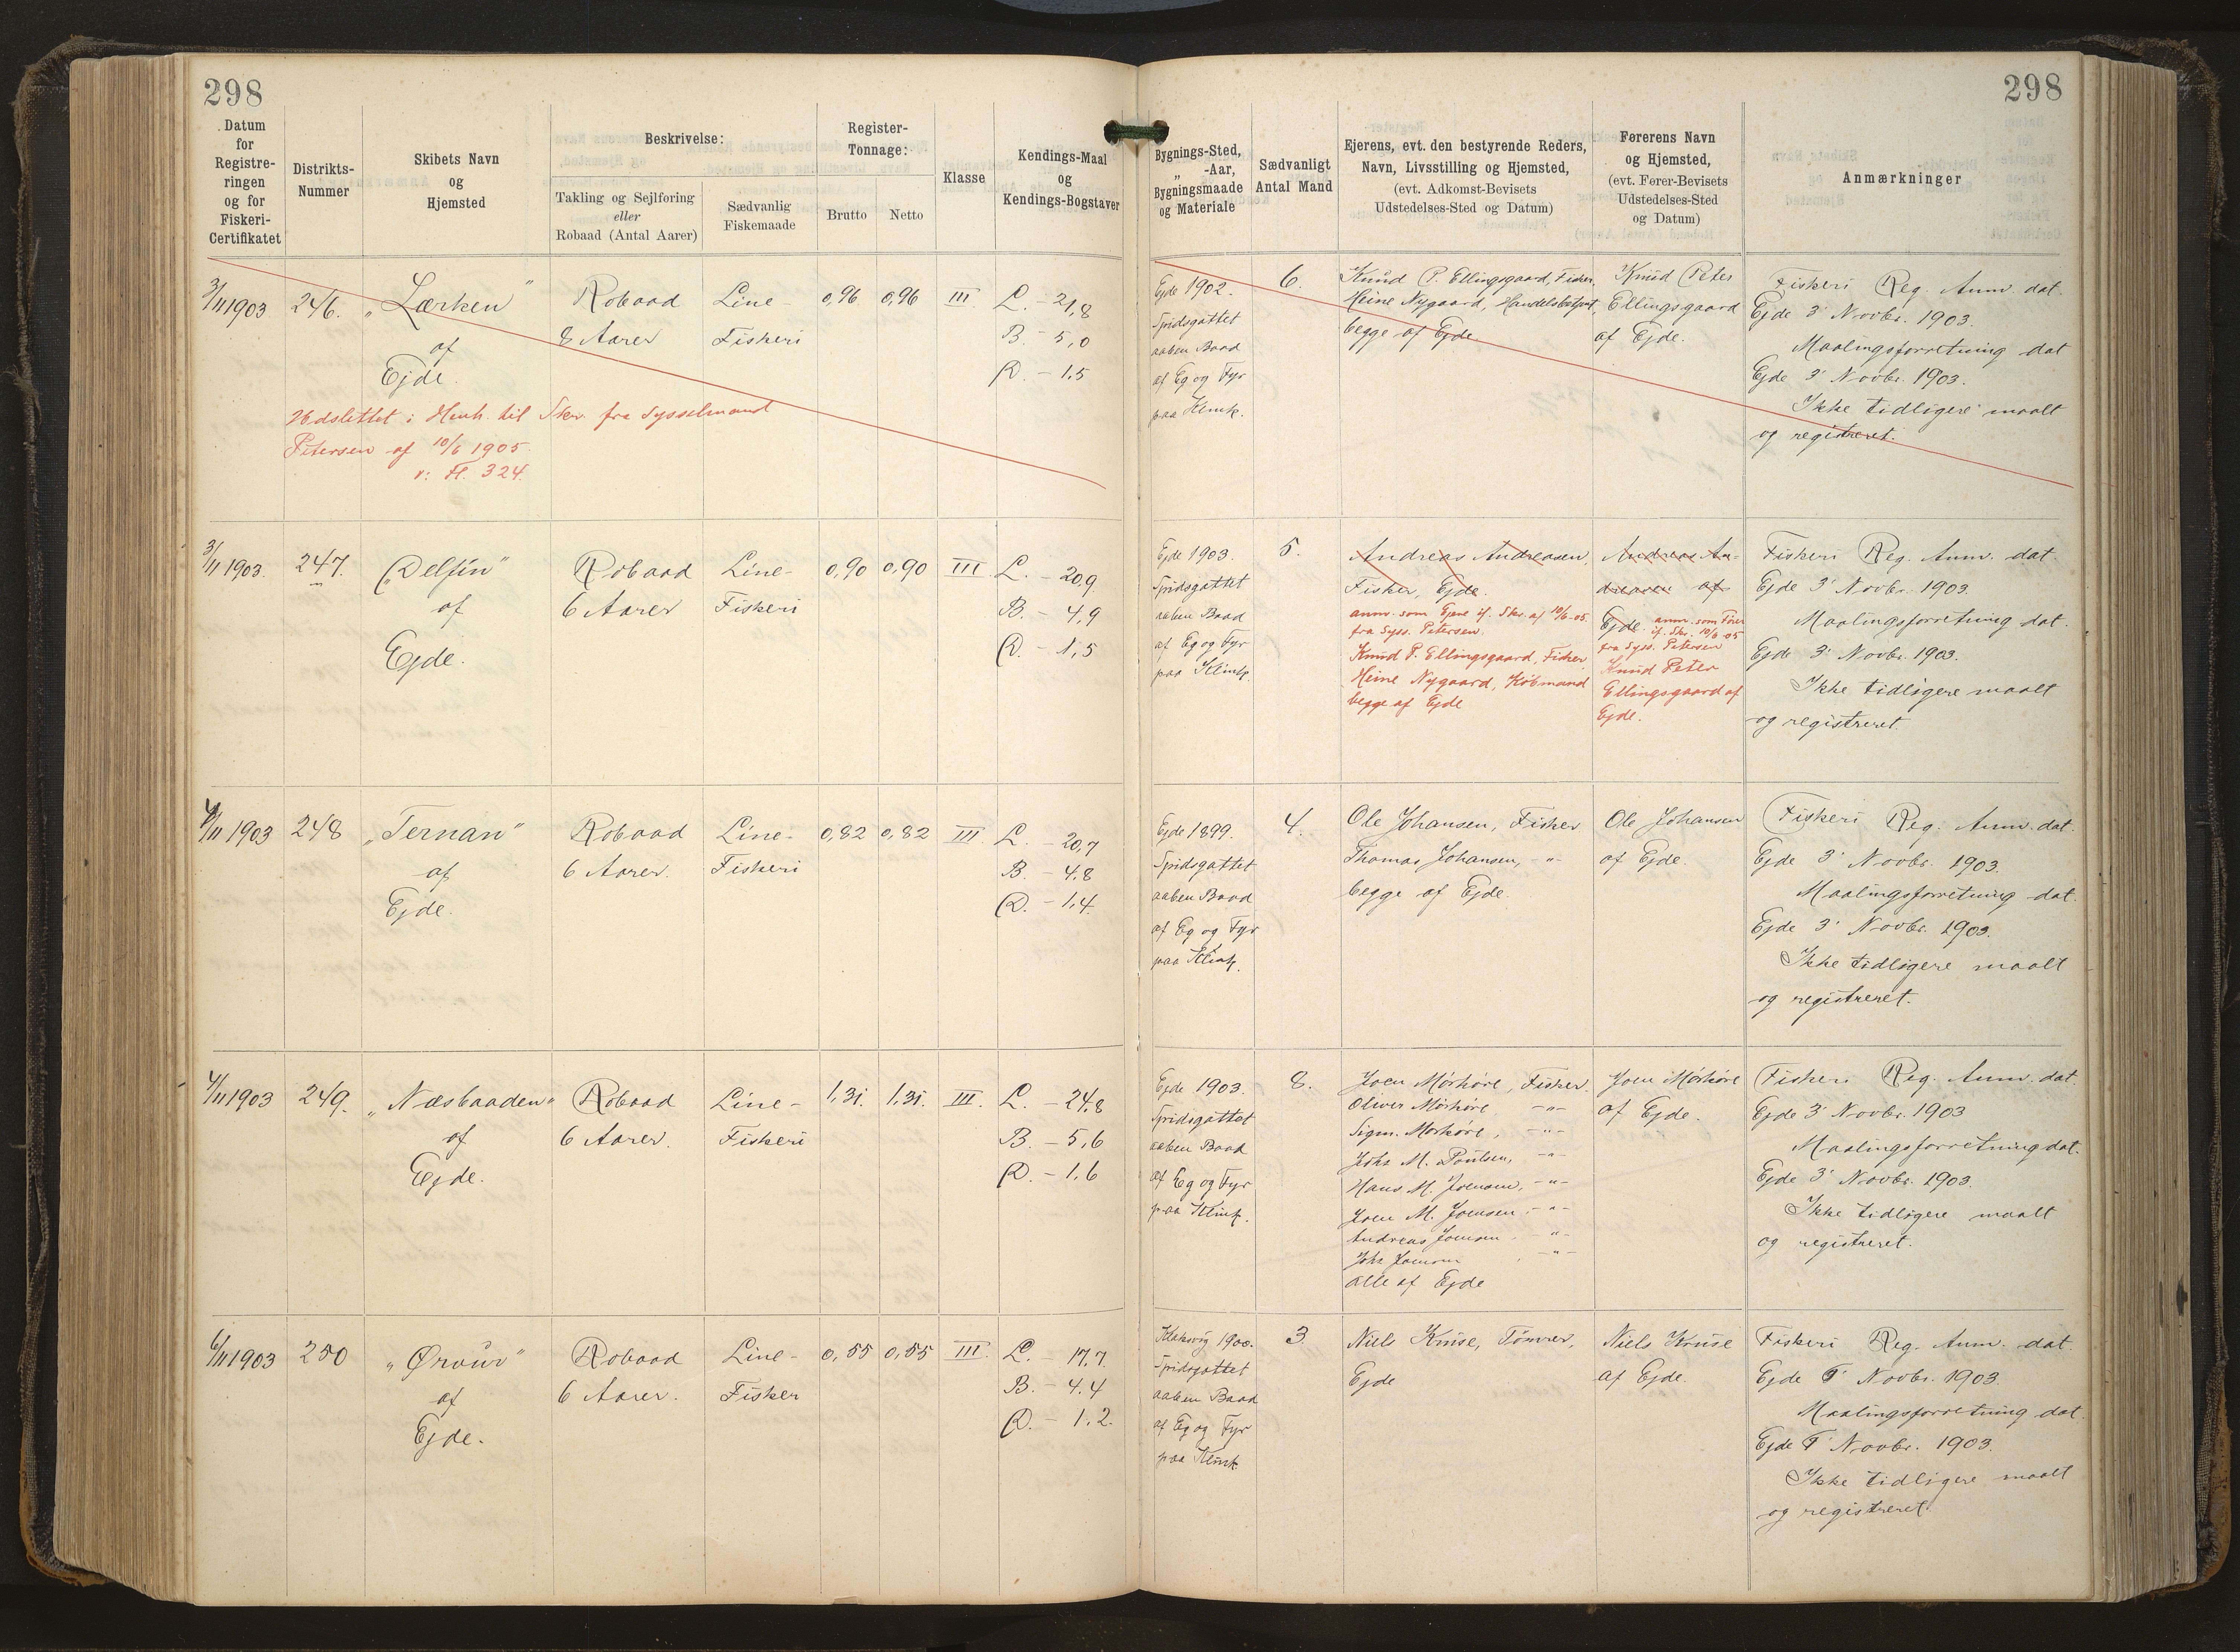 298
298
Datum
for
Registre-
ringen
og for
Fiskeri-
Certifikatet
Distrikts-
Nummer
Skibets Navn
og
Hjemsted
Beskrivelse:
Takling og Sejlføring
eller
Robaad (Antal Aarer)
Sædvanlig
Fiskemaade
Register-
Tonnage:
Brutto
Netto
Klasse
Kendings-Maal
og
Kendings-Bogstaver
Bygnings-Sted,
„ -Aar,
Bygningsmaade
og Materiale
Sædvanligt
Antal Mand
Ejerens, evt. den bestyrende Reders,
Navn, Livsstilling og Hjemsted,
(evt. Adkomst-Bevisets
Udstedelses-Sted og Datum)
Førerens Navn
og Hjemsted,
(evt. Fører-Bevisets
Udstedelses-Sted
og Datum)
Anmærkninger
3/11 1903
246.
„Lærken"
af
Ejde.
Robaad
8 Aarer
Line-
Fiskeri
0,96
0,96
III
L. - 21,8
B. - 5,0
D. - 1,5
Udslettet i Henh. til Skr. fra Sysselmand
Petersen af 10/6 1905.
v: Fl. 324.
Ejde 1902.
Spidsgattet
aaben Baad
af Eg og Fyr
paa Klink.
6.
Knud P. Ellingsgaard, Fisker,
Heine Nygaard,
begge af Ejde
Knud Peter
Ellingsgaard
af Ejde.
Fiskeri Reg. Anm. dat.
Ejde 3' Novbr. 1903.
Maalingsforretning dat
Ejde 3' Novbr. 1903.
Ikke tidligere maalt
og registreret.
3/11 1903.
247.
„Delfin"
af
Ejde.
Robaad
6 Aarer
Line-
Fiskeri
0,90
0,90
III
L. - 20,9
B. - 4,9
D. - 1,5
Ejde 1903.
Spidsgattet
aaben Baad
af Eg og Fyr
paa Klink.
5.
Andreas Andreasen,
Fisker, Ejde.
anm. som Ejere if. Skr. af 10/6-05.
fra Syss. Petersen.
Knud P. Ellingsgaard, Fisker
Heine Nygaard, Købmand
begge af Ejde
Andreas An-
dreasen af
Ejde. anm. som Fører
if. Skr. 10/6 05
fra Syss. Petersen
Knud Peter
Ellingsgaard af
Ejde.
Fiskeri Reg. Anm. dat.
Ejde 3' Novbr. 1903.
Maalingsforretning dat.
Ejde 3' Novbr. 1903.
Ikke tidligere maalt
og registreret.
4/11 1903
248
„Ternan"
af
Ejde.
Robaad
6 Aarer.
Line-
Fiskeri
0,82
0,82
III
L. - 20,7
B. - 4,8
D. - 1,4.
Ejde 1899.
Spidsgattet
aaben Baad
af Eg og Fyr
paa Klink.
4.
Ole Johansen, Fisker
Thomas Johansen, -"-
begge af Ejde.
Ole Johansen
af Ejde.
Fiskeri Reg. Anm. dat.
Ejde 3' Novbr. 1903.
Maalingsforretning dat.
Ejde 3' Novbr. 1903.
Ikke tidligere maalt
og registreret.
4/11 1903
249.
„Næsbaaden"
af
Ejde.
Robaad
6 Aarer.
Line-
Fiskeri
1,31.
1,31.
III.
L. - 24,8
B. - 5,6
D. - 1,6
Ejde 1903.
Spidsgattet
aaben Baad
af Eg og Fyr
paa Klink.
8.
Joen Mørköre, Fisker.
Oliver Mørköre, -"-
Sigm. Mørköre, -"-
Johs M. Poulsen, -"-
Hans M. Joensen, -"-
Joen M. Joensen, -"-
Andreas Joensen -"-
Johs Joensen -"-
alle af Ejde
Joen Mørköre
af Ejde.
Fiskeri Reg. Anm. dat.
Ejde 3' Novbr. 1903
Maalingsforretning dat.
Ejde 3' Novbr. 1903.
Ikke tidligere maalt
og registreret.
6/11 1903
250
„Ørvur"
af
Ejde.
Robaad
6 Aarer.
Line-
Fisker
0,55
0,55
III.
L. - 17,7.
B. - 4.4
D. - 1.2.
Klaksvig 1900.
Spidsgattet
aaben Baad
af Eg og Fyr
paa Klink
3.
Niels Kruse, Tömrer,
Ejde
Niels Kruse
af Ejde.
Fiskeri Reg. Anm. dat
Ejde Novbr. 1903.
Maalingsforretning dat.
Ejde Novbr. 1903.
Ikke tidligere maalt
og registreret.